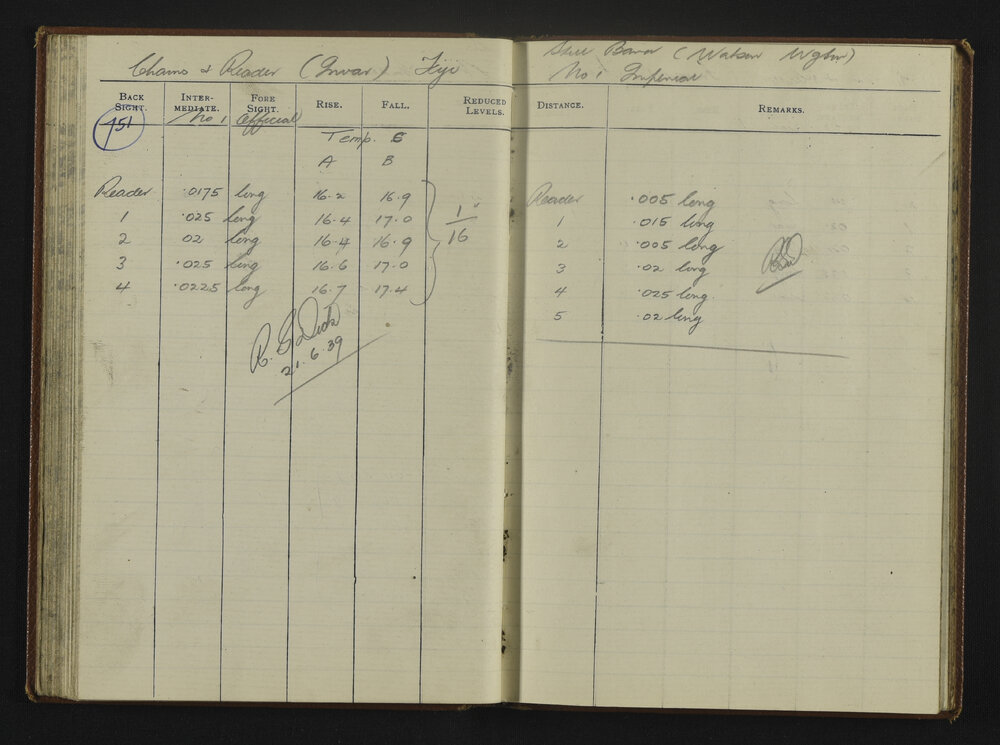 Chains & Reader (Invar) Fiji
BACK SIGHT. INTER-MEDIATE. FORE SIGHT. RISE. FALL. REDUCED LEVELS.
151 No 1 Official
Temp.
A B
Reader .0175 long 16.2 16.9
1 .025 long 16.4 17.0
2 02 long 16.4 16.9
3 .025 long 16.6 17.0
4 .0225 long 16.7 17.4
1"
16
21.6.39
Steel Band (Watson Wgtn)
No 1 Imperial
DISTANCE. REMARKS.
Reader .005 long
1 .015 long
2 .005 long
3 .02 long
4 .025 long.
5 .02 long